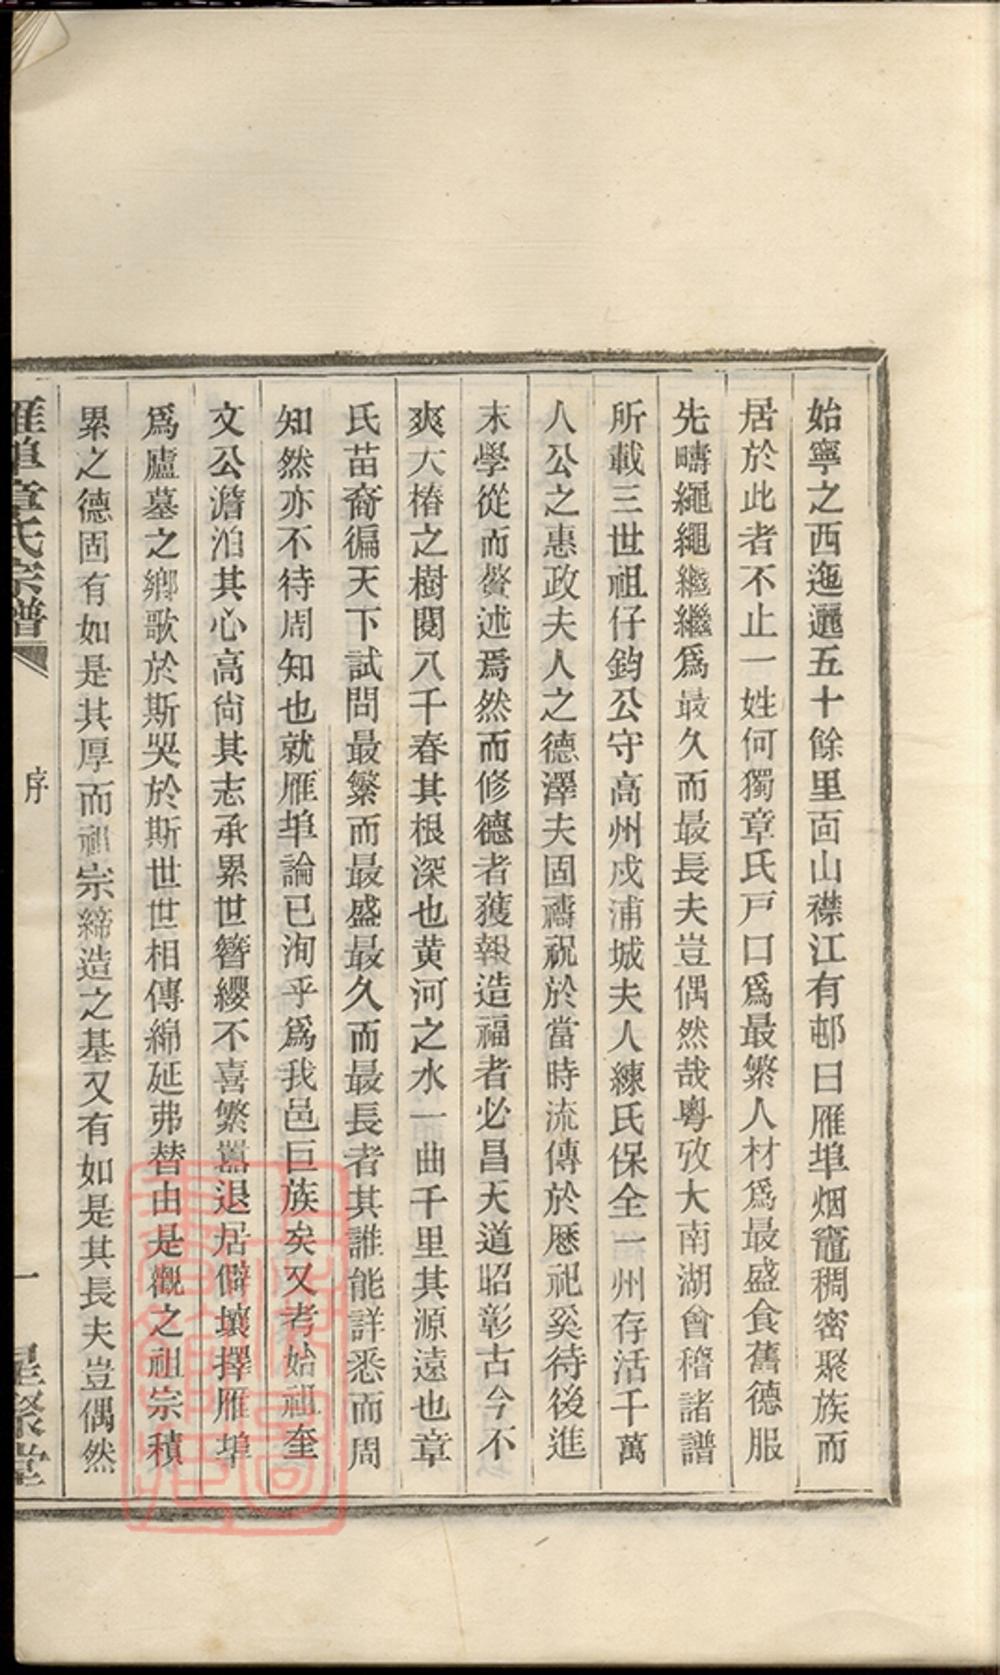 始寧之西迤邐五十餘里面山襟江有邨曰雁埠烟竈稠密聚族而
居於此者不止一姓何獨章氏戸口爲最繁人材爲最盛食舊德服
先疇繩繩繼繼爲最久而最長夫豈偶然哉粵攷大南湖會稽諸譜
所載三世祖仔鈞公守高州戍浦城夫人練氏保全一州存活千萬
人公之惠政夫人之德澤夫固禱祝於當時流傳於歷祀奚待後進
末學從而贅述焉然而修德者獲報造福者必昌天道昭彰古今不
爽大椿之樹閱八千春其根深也黄河之水一曲千里其源遠也章
氏苗裔徧天下試問最繁而最盛最久而最長者其誰能詳悉而周
知然亦不待周知也就雁埠論已洵乎爲我邑巨族矣又考始祖奎
文公澹泊其心高尙其志承累世簪纓不喜繁囂退居僻壤擇雁埠
爲廬墓之鄉歌於斯哭於斯世世相傳綿延弗替由是觀之祖宗積
累之德固有如是其厚而祖宗締造之基又有如是其長夫豈偶然
雁埠章氏宗譜
序
一
星聚堂
上海圖書館藏